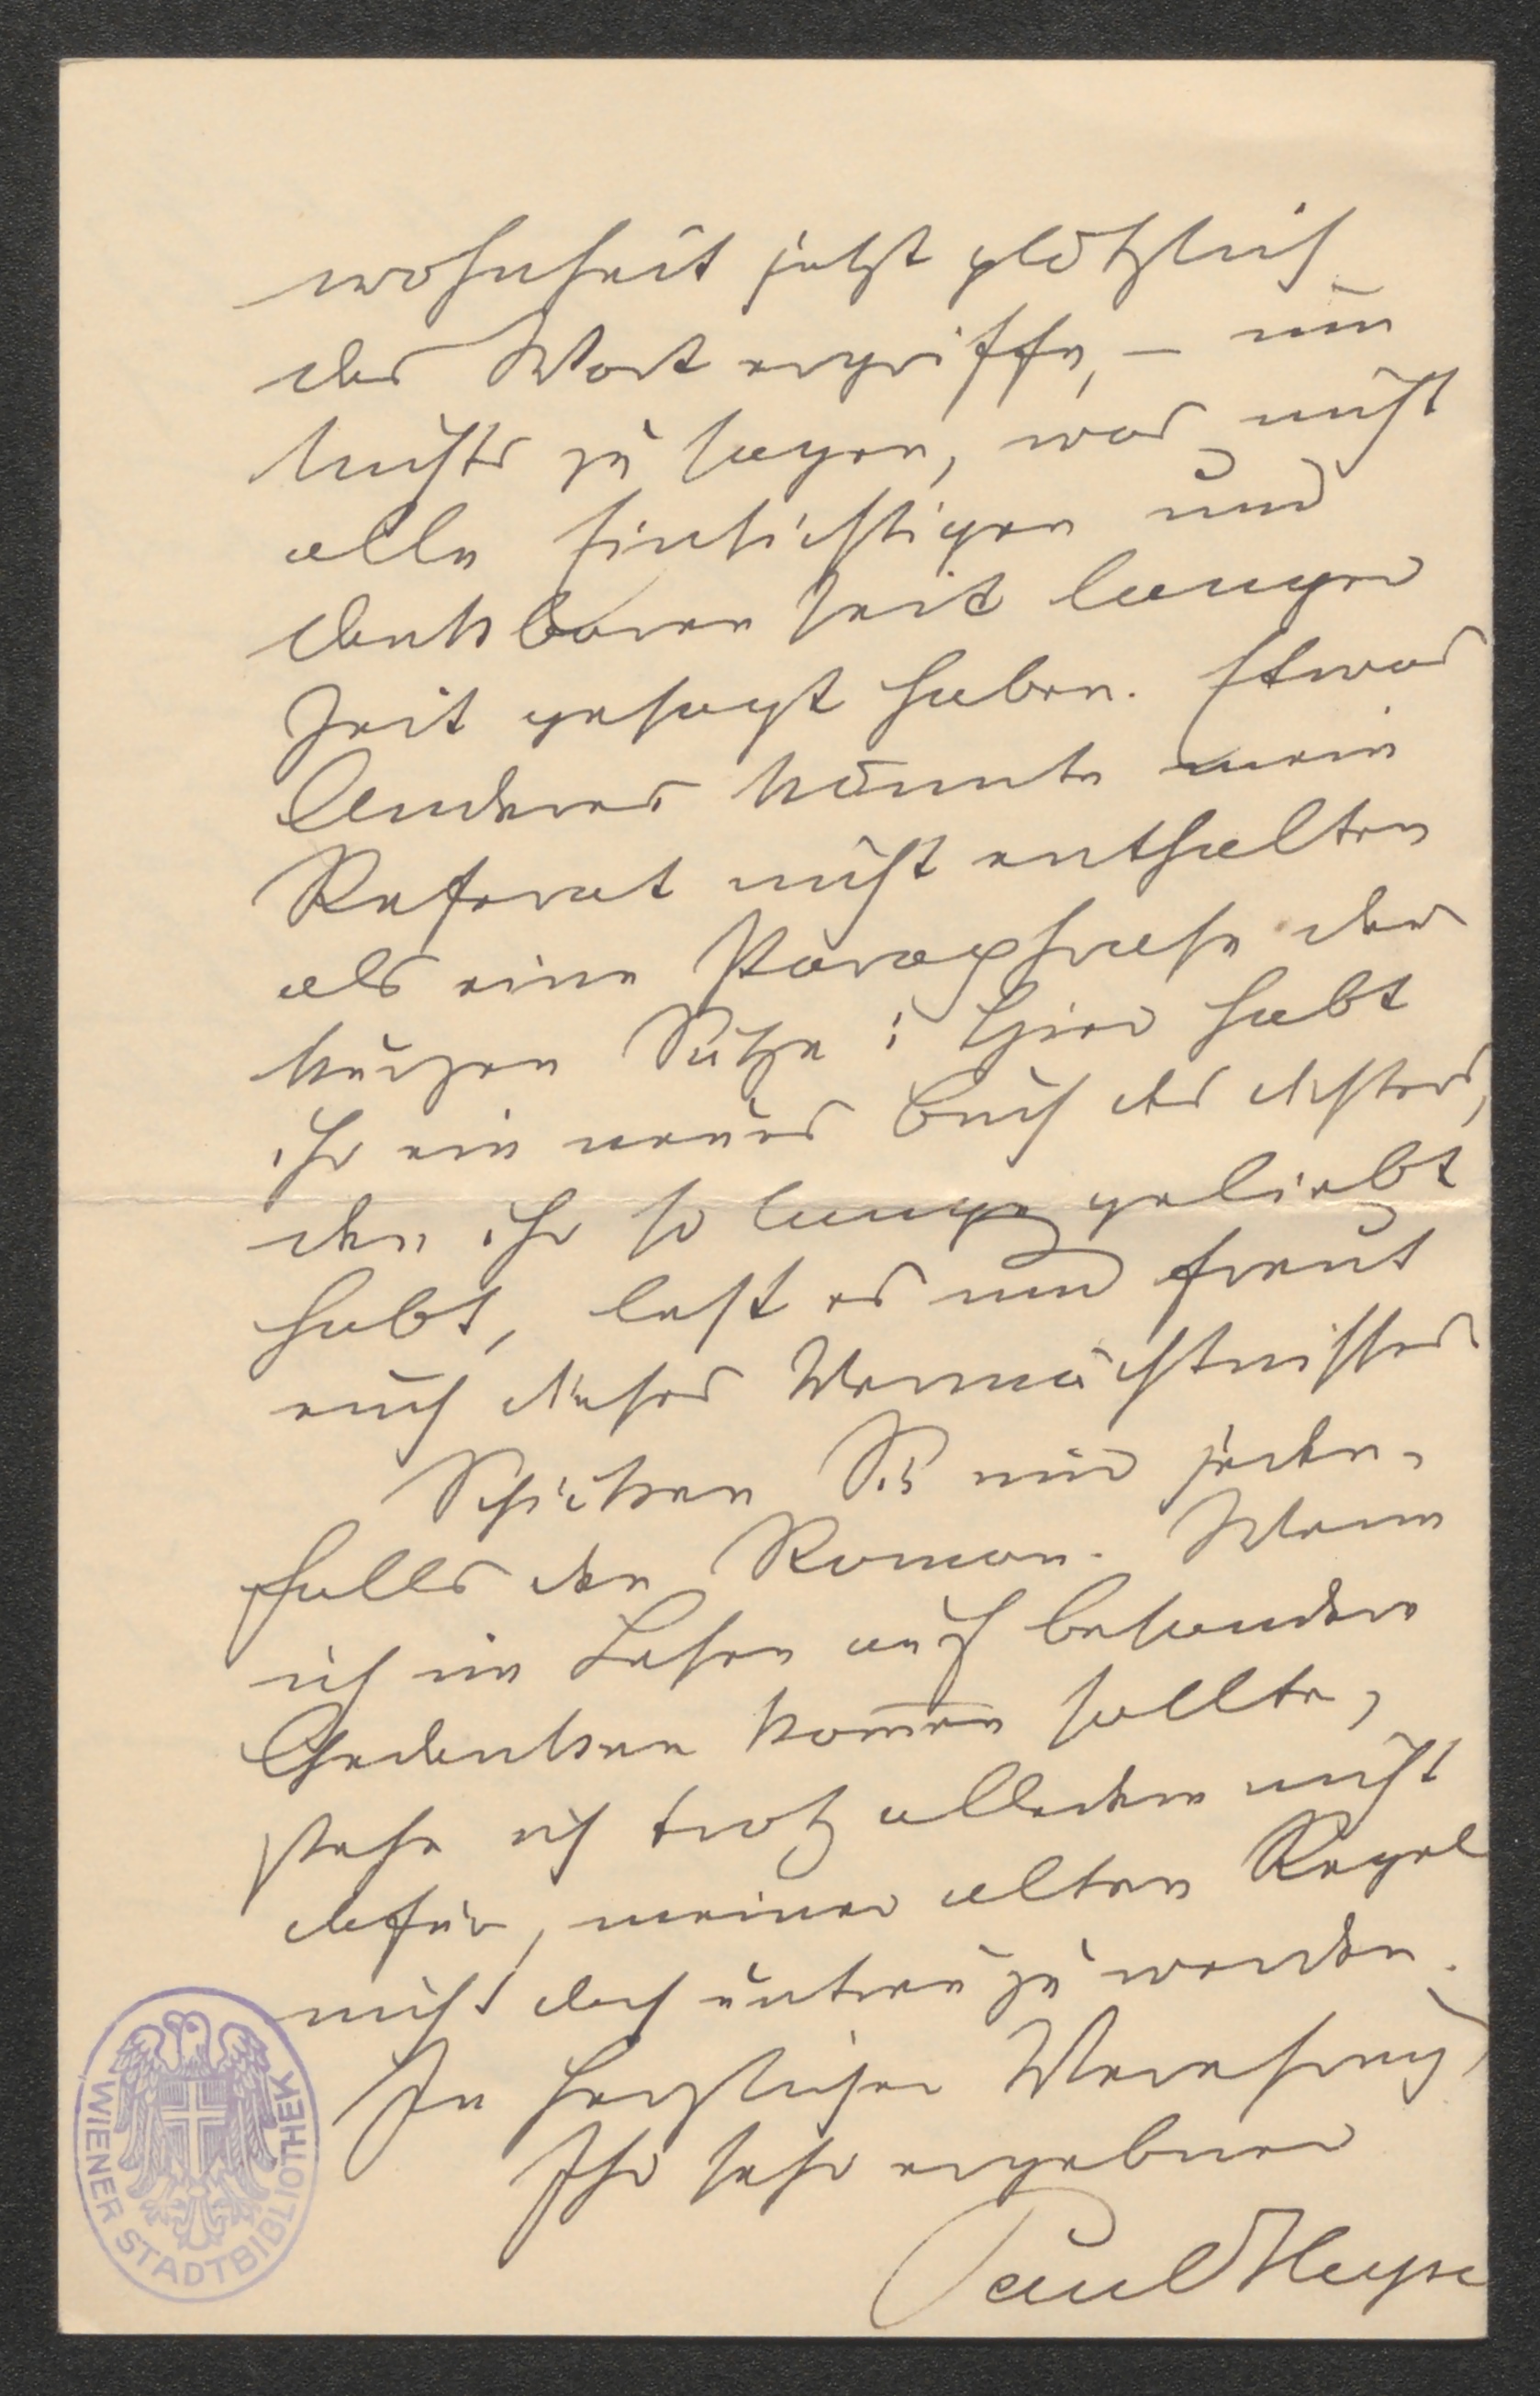 wohnheit jetzt plötzlich
das Wort ergriffe, – um
nichts zu sagen, was nicht
alle Einsichtigen und
Dankbaren seit langer
Zeit gesagt haben. Etwas
Anderes könnte mein
Referat nicht enthalten
als eine Paraphrase der
kurzen Sätze: Hier habt
ihr ein neues Buch des Dichters,
den ihr so lange geliebt
habt, lest es und freut
euch dieses Vermächtnisses
Schicken Sie mir jeden-
falls den Roman. Wenn
ich im Lesen auf besondere
Gedanken kom̄en sollte,
stehe ich trotz alledem nicht
dafür, meiner alten Regel
nicht doch untreu zu werden.
In herzlicher Verehrung
Ihr sehr ergebener
Paul Heyse
WIENER STADTBIBLIOTHEK